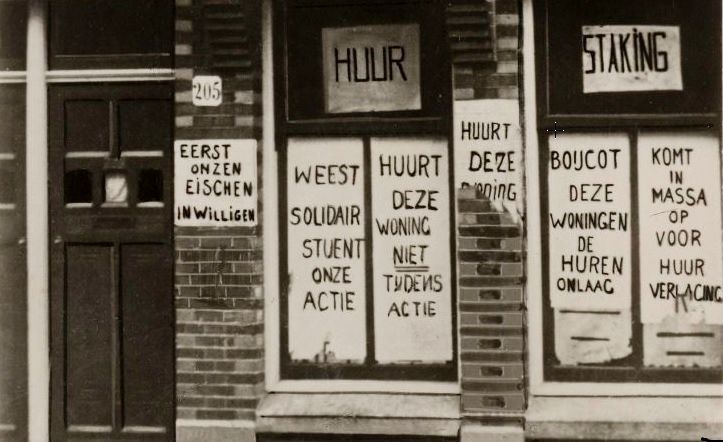 HUUR
STAKING
205
EERST
ONZEN
EISCHEN
INWILLIGEN
WEEST
SOLIDAIR
STUENT
ONZE
ACTIE
HUURT
DEZE
WONING
NIET
TIJDENS
ACTIE
HUURT
DEZE
BOIJCOT
DEZE
WONINGEN
DE
HUREN
OMLAAG
KOMT
IN
MASSA
OP
VOOR
HUUR
VERLAGING